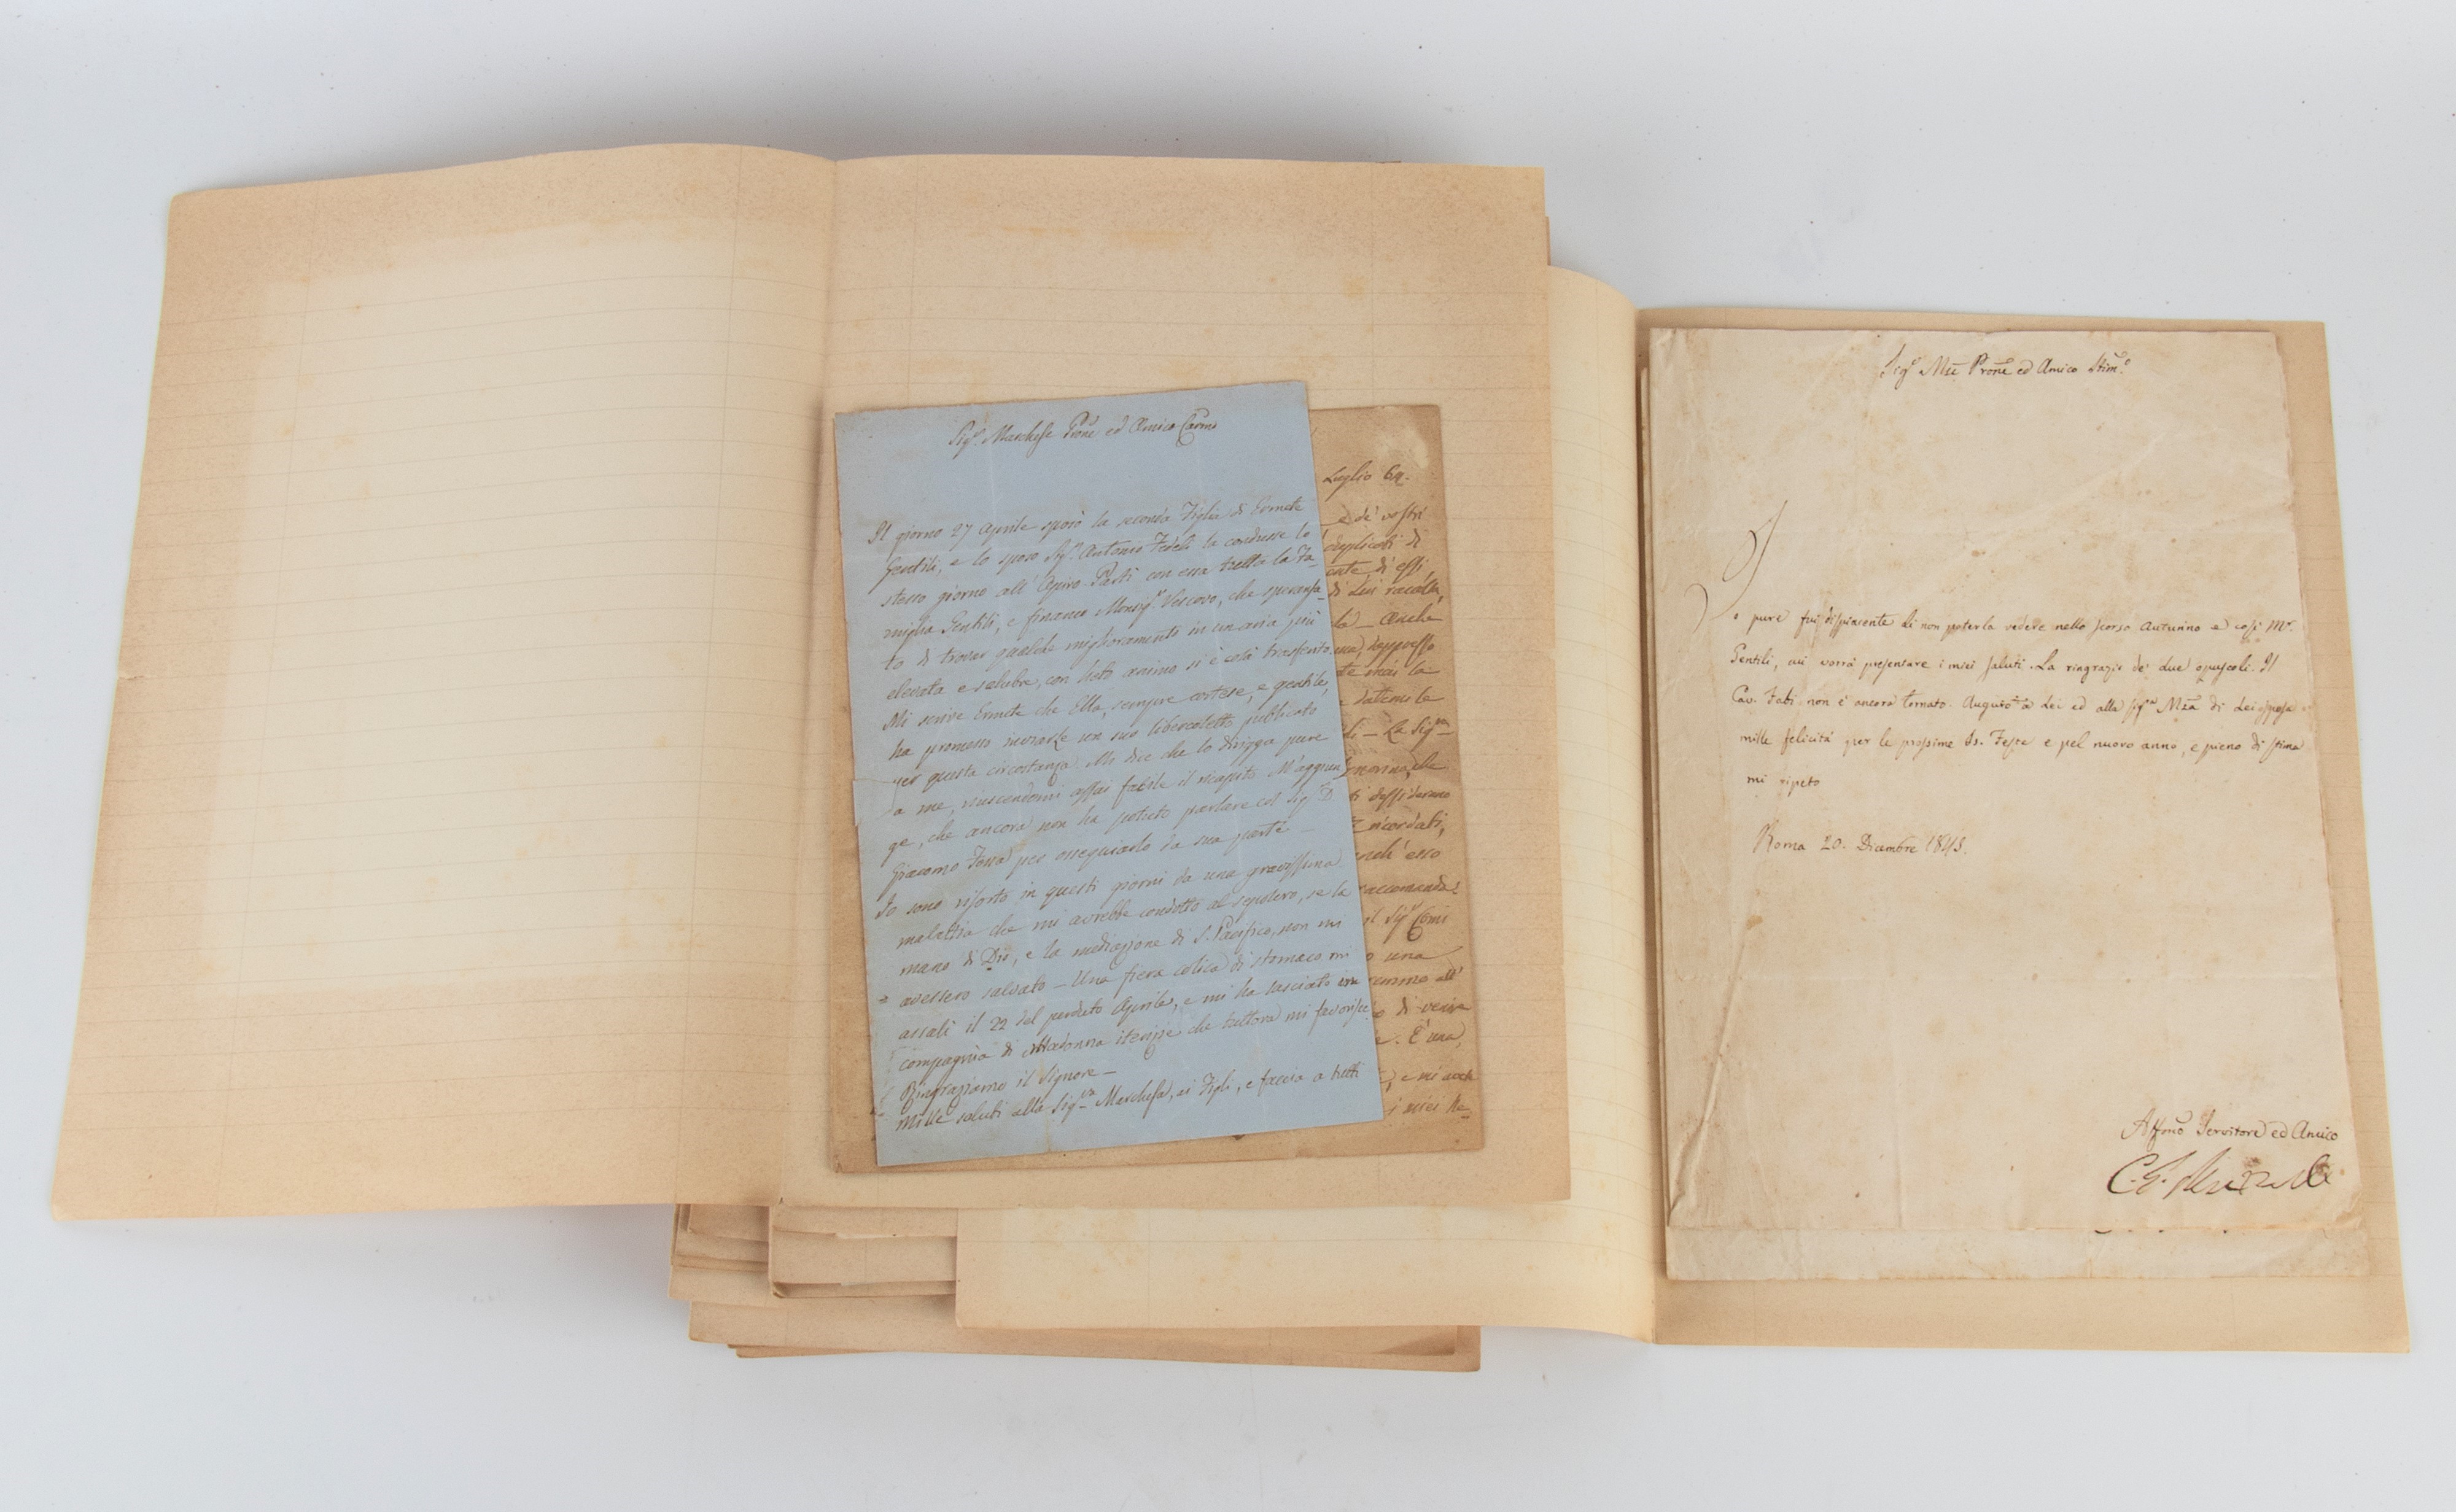 Sig.r Marchese Prone ed Amico Carmo
Il giorno 27 Aprile sposò la seconda Figlia di Ermete
Gentili, e lo sposo Sig.r Antonio Fedeli la condusse lo
stesso giorno all' Apiro. Partì con essa tutta la Fa-
miglia Gentili, e financo Monsig.r Vescovo, che speranza-
to di trovar qualche miglioramento in un aria più
elevata e salubre, con lieto animo si è colà trasferito.
Mi scrive Ermete che Ella, sempre cortese, e gentile,
ha promesso inviarle un suo libercoletto pubblicato
per questa circostanza. Mi dice che lo dirigga pure
a me, riuscendomi assai facile il recapito. M'aggiun-
ge, che ancora non ha potuto parlare col Sig.r D.
Giacomo per ossequiarlo da sua parte —
Io sono risorto in questi giorni da una gravissima
malattia che mi avrebbe condotto al sepolcro, se la
mano di Dio, e la mediazione di S. Pacifico, non mi
avessero salvato — Una fiera colica di stomaco mi
assalì il 22 del perduto Aprile, e mi ha lasciato in
compagnia di Madonna iterizie che tuttora mi favorisce.
Ringraziamo il Signore —
Mille saluti alla Sig.ra Marchesa, ai Figli, e faccia a tutti
Luglio 64.
e de' vostri
duplicati di
di essi,
di Lui raccolta,
Anche
dappresso
mai la
datemi le
La Sig.ra
che
desiderano
ricordati,
anch' esso
raccomanda:
il Sig.r Comi
una
all'
di venire
È una,
e mi
i miei Ne-
Sig.r Mse Prone ed Amico Stim.o
Io pure fui dispiacente di non poterla vedere nello scorso Autunno e così Mr.
Gentili, cui vorrà presentare i miei saluti. La ringrazio de' due opuscoli. Il
Cav. Fabi non è ancora tornato. Auguro a Lei ed alla Sig.ra Msa di Lei sposa
mille felicità per le prossime Ss. Feste e pel nuovo anno, e pieno di stima
mi ripeto
Roma 20. Dicembre 1843.
Affmo Servitore ed Amico